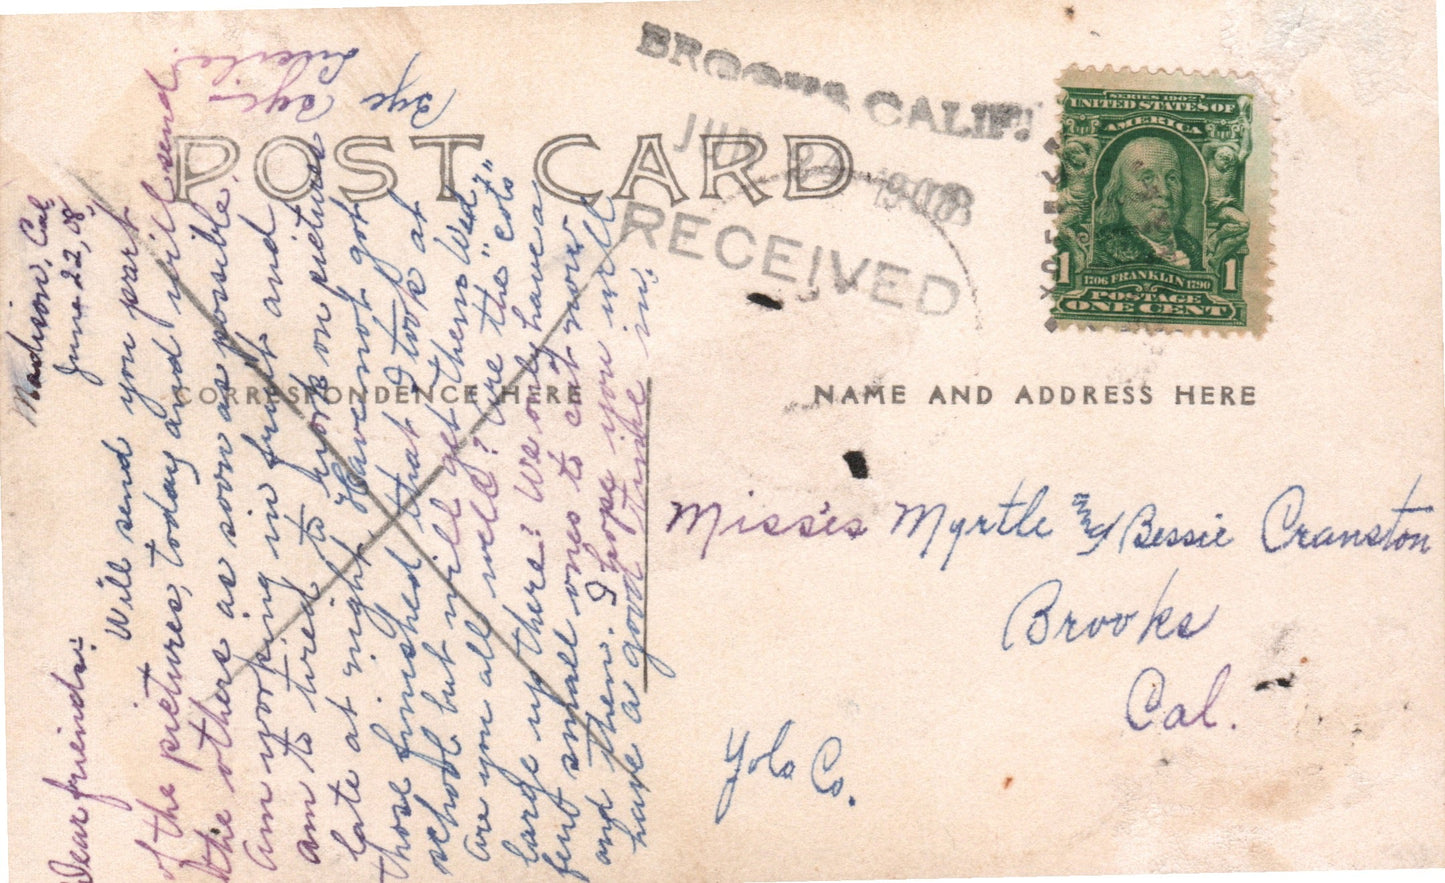 POST CARD
CORRESPONDENCE HERE
NAME AND ADDRESS HERE
BROOKS CALIF.
JUN 24 1908
RECEIVED
SERIES 1902
UNITED STATES OF
AMERICA
1 FRANKLIN 1
1706 1790
POSTAGE
ONE CENT
Madison, Cal.
June 22, 08.
Dear friends:-
Will send you part
of the pictures, today and will send
the others as soon as possible.
am working in fruit and
am to tired to work on pictures
late at night. Havenot got
those finished that I took at
school but will get them Wed.
are you all well? Are the "cots"
large up there? We only have a
few small ones to cut now
and then. I hope you will
have a good time in.
Bye Bye
Misses Myrtle and Bessie Cranston
Brooks
Cal.
Yolo Co.